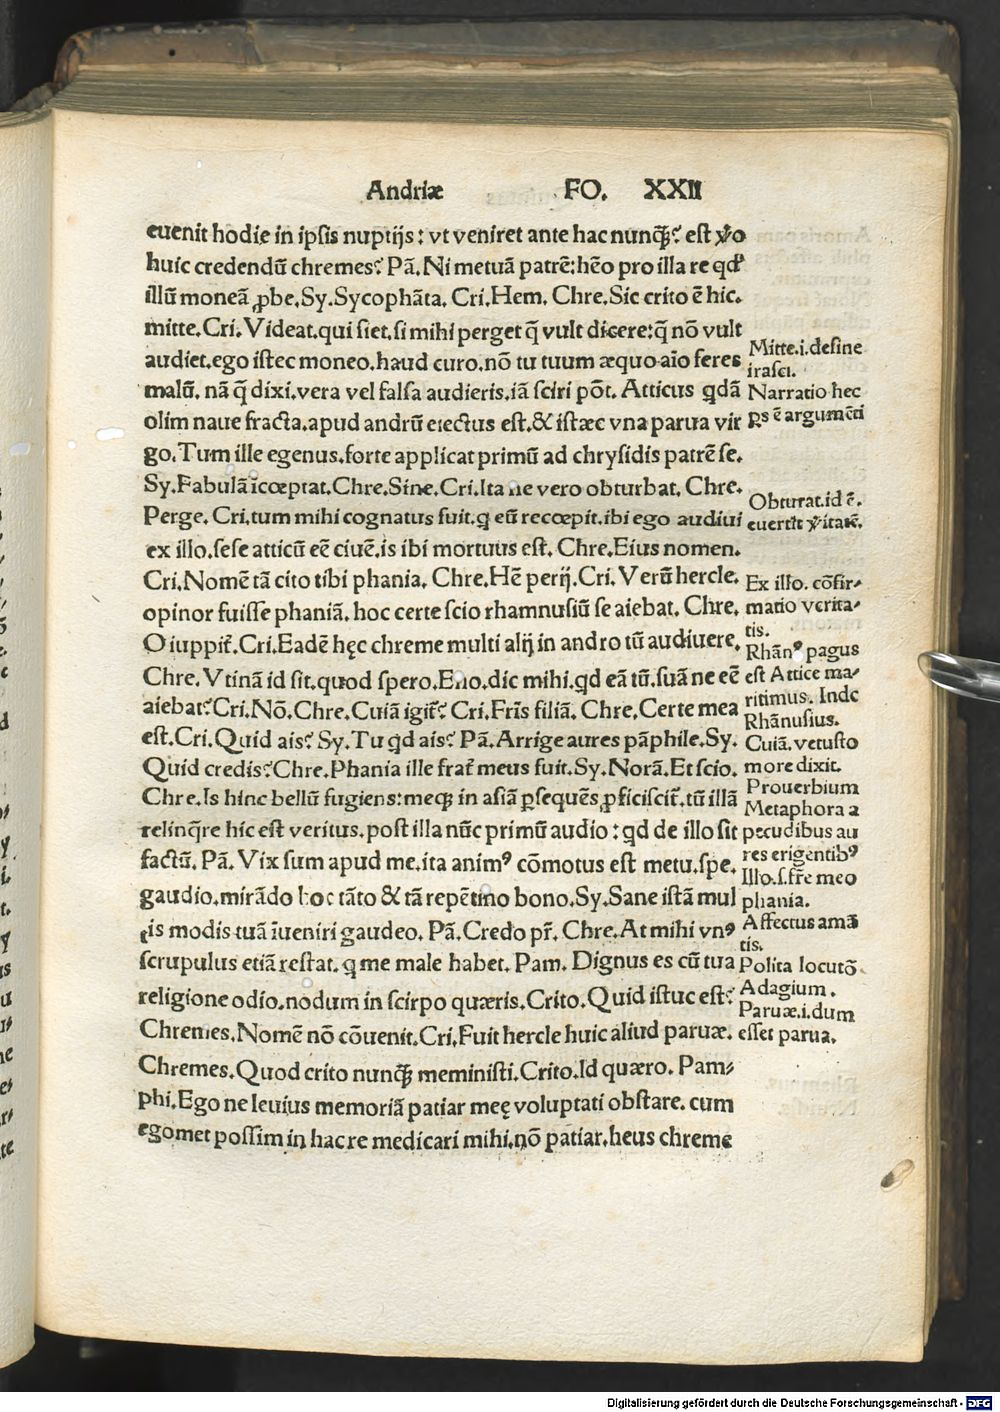 Andriæ FO. XXII
euenit hodie in ipsis nuptijs: vt veniret ante hac nunq̃ȝ? est ꝟo
huic credendũ chremes? Pã. Ni metuã patrẽ: hẽo pro illa re qdꝰ
illũ moneã ꝓbe. Sy. Sycophãta. Cri. Hem. Chre. Sic crito ẽ hic.
mitte. Cri. Videat. qui siet. si mihi perget q̃ vult dicere: q̃ nõ vult
audiet. ego istec moneo. haud curo. nõ tu tuum æquo aĩo feres
malũ. nã q̃ dixi. vera vel falsa audieris. iã sciri põt. Atticus qdã
olim naue fracta. apud andrũ eiectus est. & istæc vna parua vir
go. Tum ille egenus. forte applicat primũ ad chrysidis patrẽ se.
Sy. Fabulã ĩcœptat. Chre. Sine. Cri. Ita ne vero obturbat. Chre.
Perge. Cri. tum mihi cognatus fuit. q eũ recœpit. ibi ego audiui
ex illo. sese atticũ eẽ ciuẽ. is ibi mortuus est. Chre. Eius nomen.
Cri. Nomẽ tã cito tibi phania. Chre. Hẽ perij. Cri. Verũ hercle.
opinor fuisse phaniã. hoc certe scio rhamnusiũ se aiebat. Chre.
O iuppit̃. Cri. Eadẽ hęc chreme multi alij in andro tũ audiuere.
Chre. Vtinã id sit. quod spero. Eho. dic mihi. qd eã tũ. suã ne eẽ
aiebat? Cri. Nõ. Chre. Cuiã igit̃? Cri. Fr̃is filiã. Chre. Certe mea
est. Cri. Quid ais? Sy. Tu qd ais? Pã. Arrige aures pãphile. Sy.
Quid credis? Chre. Phania ille frat̃ meus fuit. Sy. Norã. Et scio.
Chre. Is hinc bellũ fugiens: meqȝ in asiã ꝑsequẽs ꝓficiscit̃. tũ illã
relinq̃re hic est veritus. post illa nũc primũ audio: qd de illo sit
factũ. Pã. Vix sum apud me. ita animꝰ cõmotus est metu. spe.
gaudio. mirãdo hoc tãto & tã repẽtino bono. Sy. Sane istã mul
tis modis tuã ĩueniri gaudeo. Pã. Credo pr̃. Chre. At mihi vnꝰ
scrupulus etiã restat. q me male habet. Pam. Dignus es cũ tua
religione odio. nodum in scirpo quæris. Crito. Quid istuc est?
Chremes. Nomẽ nõ cõuenit. Cri. Fuit hercle huic aliud paruæ.
Chremes. Quod crito nunq̃ȝ meministi. Crito. Id quæro. Pam⸗
phi. Ego ne leuius memoriã patiar meę voluptati obstare. cum
egomet possim in hac re medicari mihi. nõ patiar. heus chreme
Mitte. i. desine
irasci.
Narratio hec
ꝑs ẽ argumẽti
Obturat. id ẽ.
euertit ꝟitatẽ.
Ex illo. cõfir⸗
matio verita⸗
tis.
Rhãnꝰ pagus
est Attice ma⸗
ritimus. Inde
Rhãnusius.
Cuiã. vetusto
more dixit.
Prouerbium
Metaphora a
pecudibus au
res erigentibꝰ
Illo. s. fr̃e meo
phania.
Affectus amã
tis.
Polita locutõ.
Adagium.
Paruæ. i. dum
esset parua.
Digitalisierung gefördert durch die Deutsche Forschungsgemeinschaft - DFG